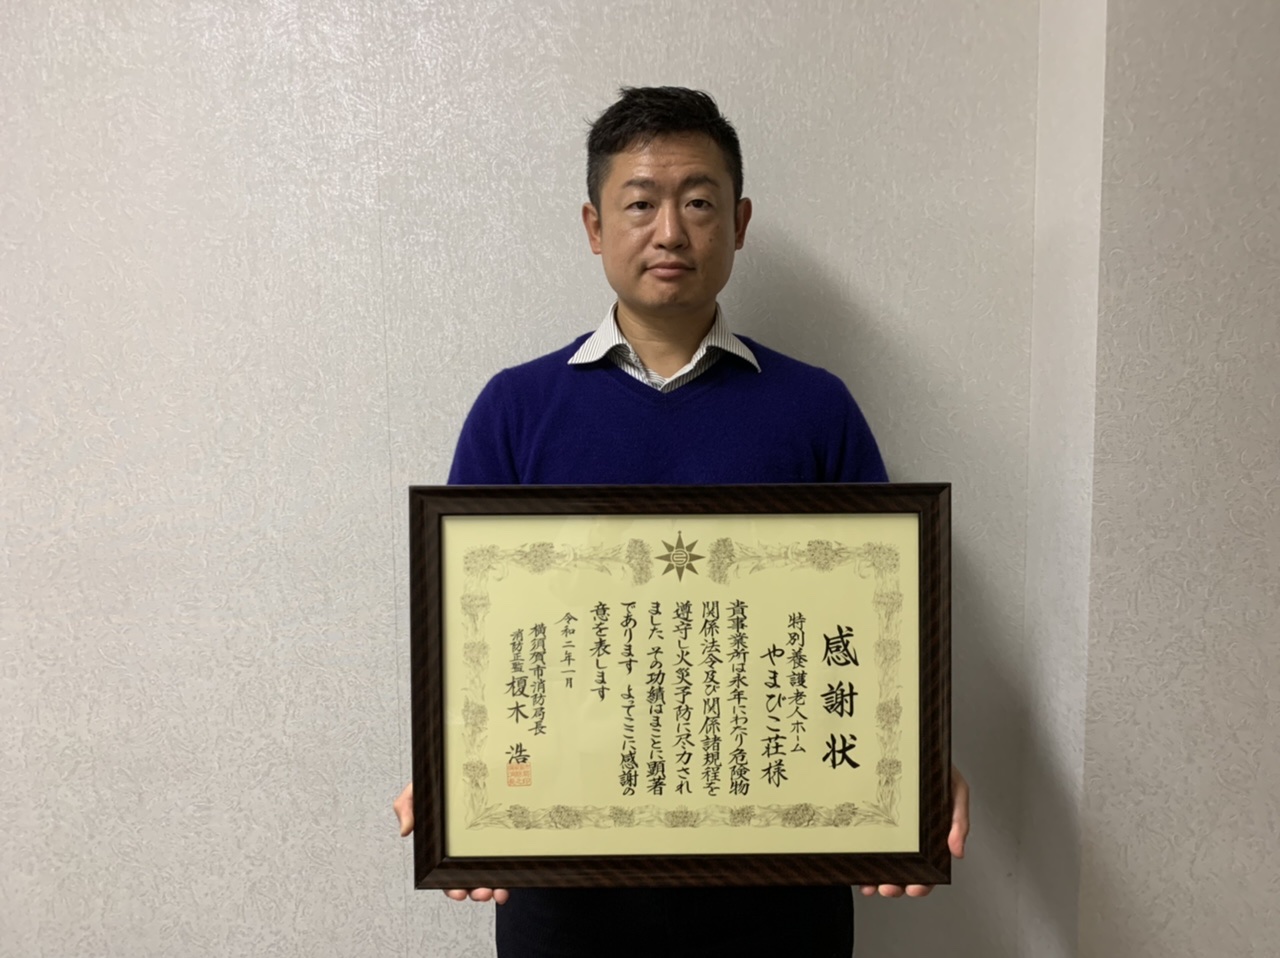 感謝状
特別養護老人ホーム
やまびこ荘様
貴事業所は永年にわたり危険物
関係法令及び関係諸規程を
遵守し火災予防に尽力され
ました その功績はまことに顕著
であります よってここに感謝の
意を表します
令和二年一月
横須賀市消防局長
消防正監 榎木 浩